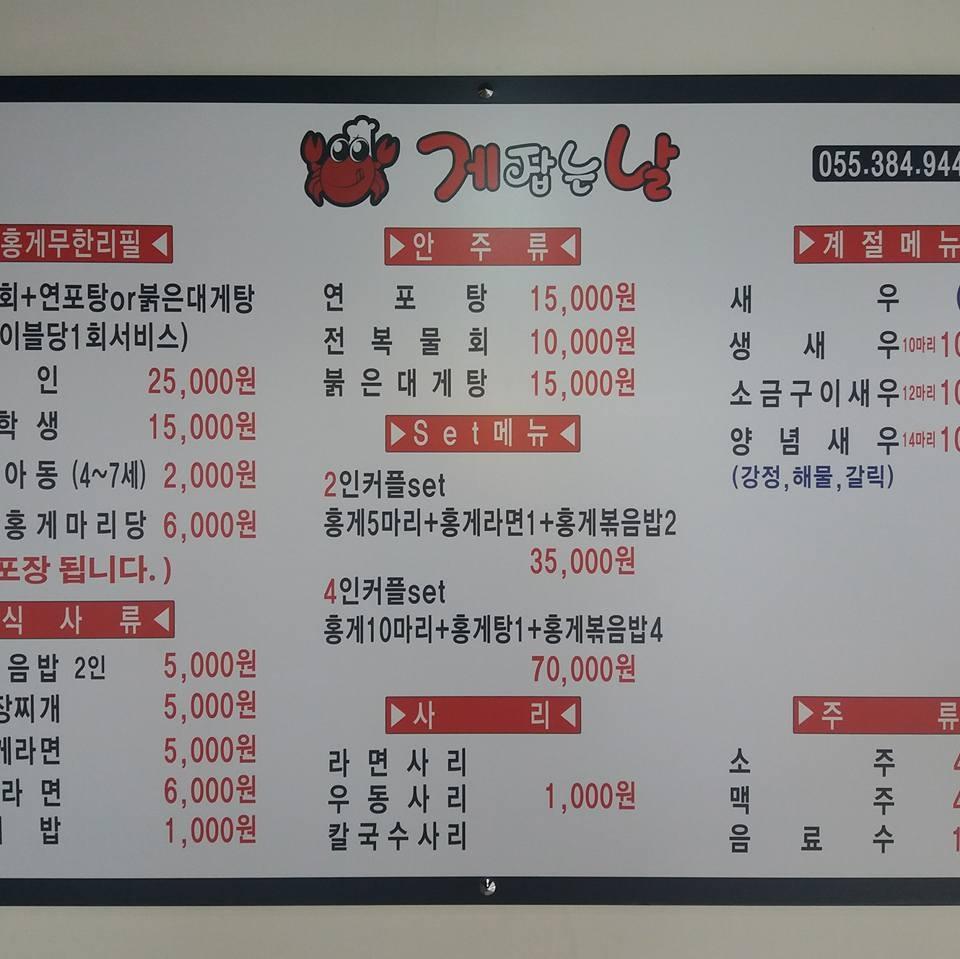 게잡는날
055.384.944
홍게무한리필◀
회+연포탕or붉은대게탕
이블당1회서비스)
인 25,000원
학생 15,000원
아동 (4~7세) 2,000원
홍게마리당 6,000원
포장 됩니다.)
식사류◀
음밥 2인 5,000원
장찌개 5,000원
게라면 5,000원
라면 6,000원
밥 1,000원
▶안주류◀
연포탕 15,000원
전복물회 10,000원
붉은대게탕 15,000원
▶Set메뉴◀
2인커플set
홍게5마리+홍게라면1+홍게볶음밥2
35,000원
4인커플set
홍게10마리+홍게탕1+홍게볶음밥4
70,000원
▶사리◀
라면사리
우동사리 1,000원
칼국수사리
▶계절메뉴
새우
생새우 10마리 10
소금구이새우 12마리 10
양념새우 14마리 10
(강정,해물,갈릭)
▶주류
소주
맥주
음료수